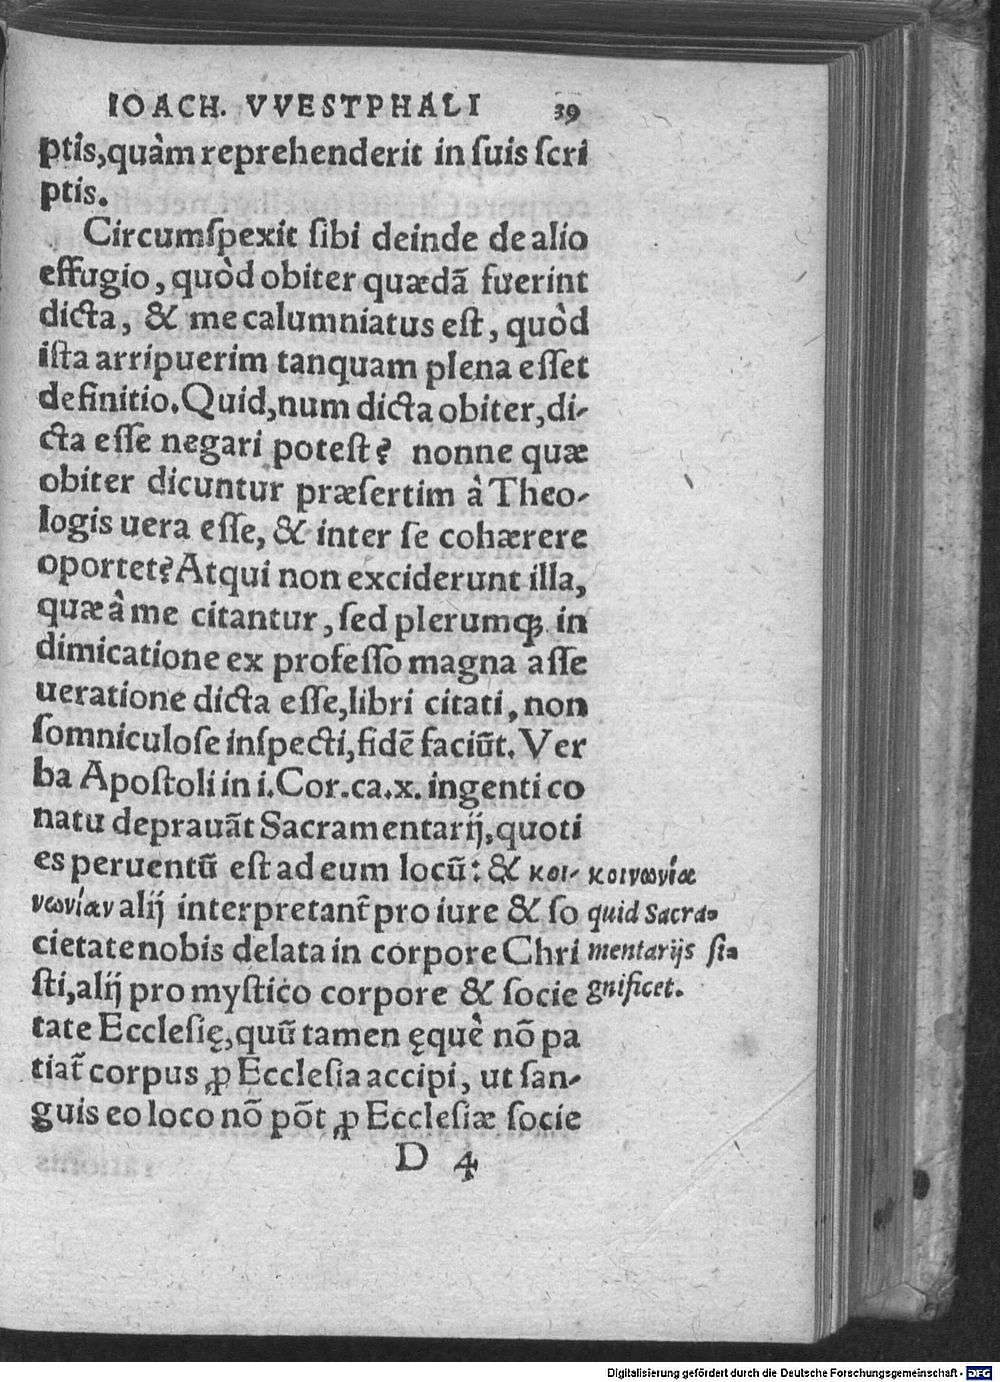 IOACH. VVESTPHALI 39
ptis, quàm reprehenderit in ſuis ſcri
ptis.
Circumſpexit ſibi deinde de alio
effugio, quòd obiter quædā fuerint
dicta, & me calumniatus eſt, quòd
iſta arripuerim tanquam plena eſſet
definitio. Quid, num dicta obiter, di-
cta eſſe negari poteſt? nonne quæ
obiter dicuntur præſertim à Theo-
logis uera eſſe, & inter ſe cohærere
oportet? Atqui non exciderunt illa,
quæ â me citantur, ſed plerumq́; in
dimicatione ex profeſſo magna aſſe
ueratione dicta eſſe, libri citati, non
ſomniculoſe inſpecti, fidē faciūt. Ver
ba Apoſtoli in i. Cor. ca. x. ingenti co
natu deprauāt Sacramentarij, quoti
es peruentū eſt ad eum locū: & κοι-
νωνίαν alij interpretant̃ pro iure & ſo
cietate nobis delata in corpore Chri
ſti, alij pro myſtico corpore & ſocie
tate Eccleſię, quū tamen ęquè nō pa
tiat̃ corpus ꝓ Eccleſia accipi, ut ſan-
guis eo loco nō pōt ꝓ Eccleſiæ ſocie
D 4
κοινωνία
quid Sacra-
mentarijs ſi-
gnificet.
Digitalisierung gefördert durch die Deutsche Forschungsgemeinschaft - DFG